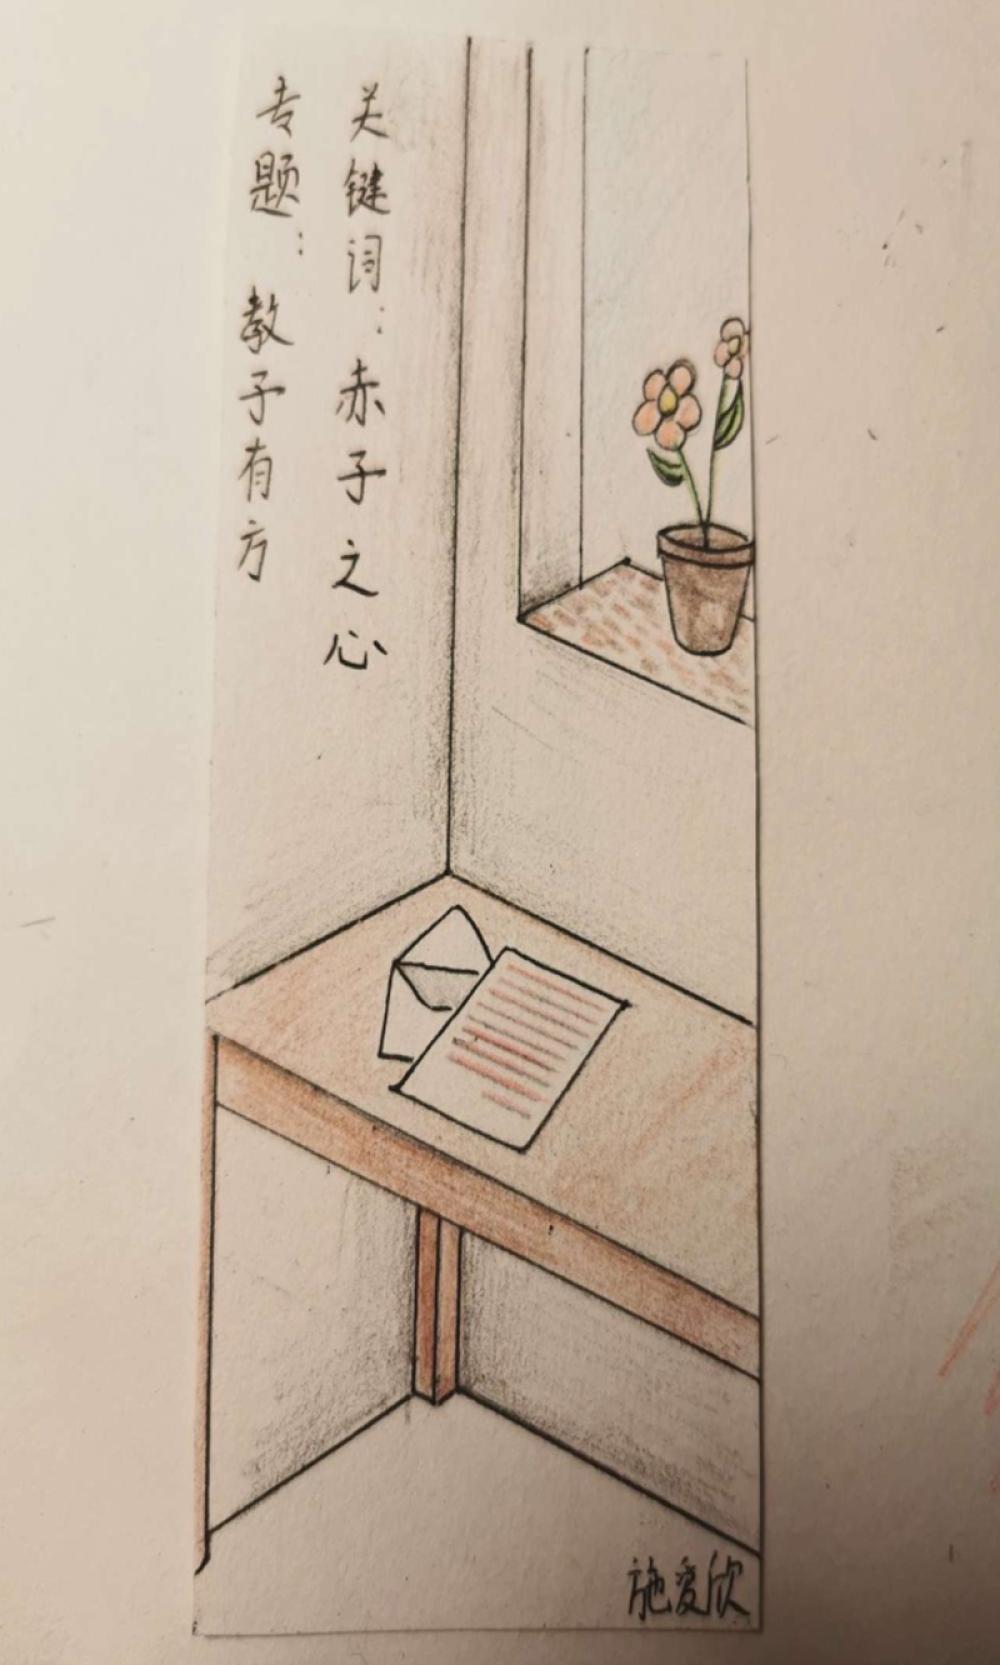 关键词：赤子之心
专题：教子有方
施爱欣